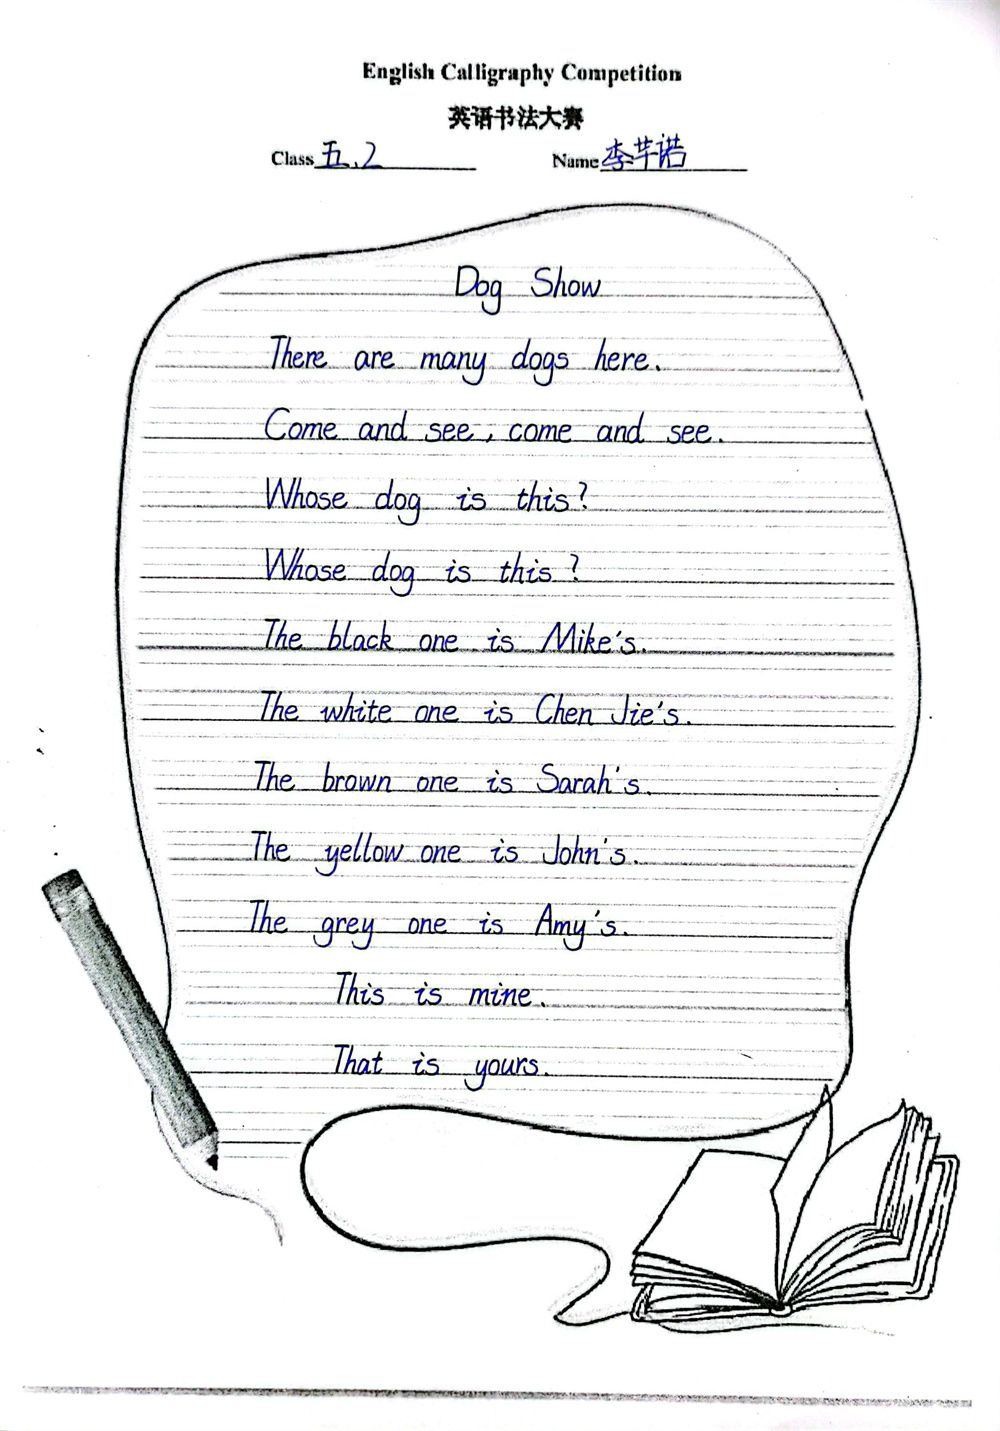 English Calligraphy Competition
英语书法大赛
Class 五.2 Name 李芊诺
Dog Show
There are many dogs here.
Come and see, come and see.
Whose dog is this?
Whose dog is this?
The black one is Mike's.
The white one is Chen Jie's.
The brown one is Sarah's.
The yellow one is John's.
The grey one is Amy's.
This is mine.
That is yours.